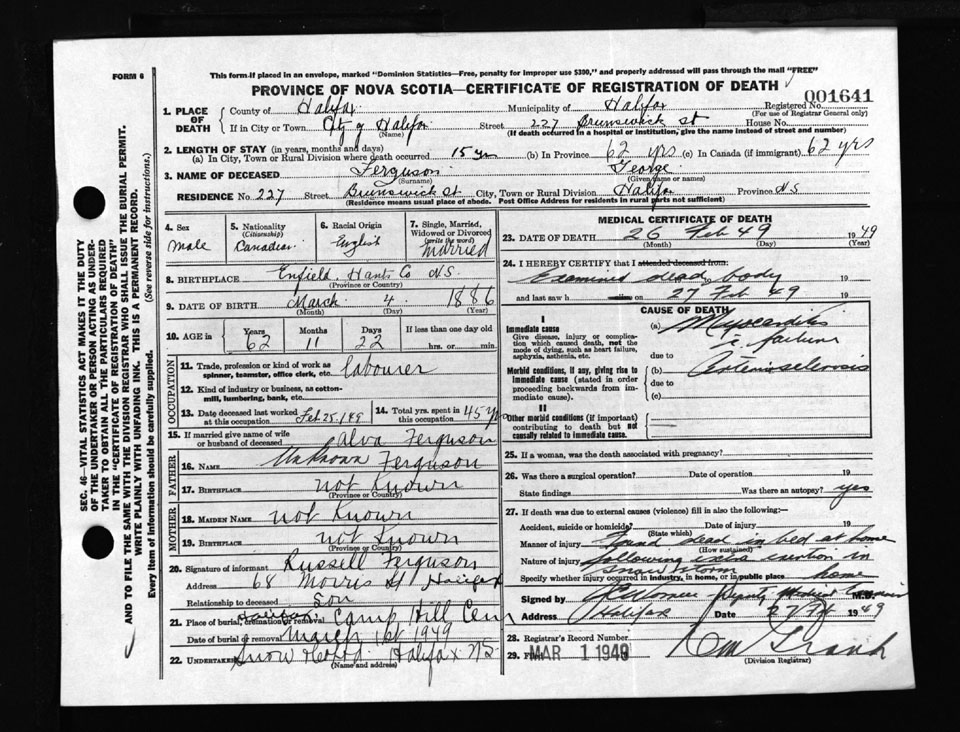 FORM 6
This form if placed in an envelope, marked "Dominion Statistics—Free, penalty for improper use $300," and properly addressed will pass through the mail "FREE"
PROVINCE OF NOVA SCOTIA—CERTIFICATE OF REGISTRATION OF DEATH
001641
1. PLACE OF DEATH
County of Halifax Municipality of Halifax Registered No.
(For use of Registrar General only)
If in City or Town City of Halifax Street 227 Brunswick St House No.
(Name) (If death occurred in a hospital or institution, give the name instead of street and number)
2. LENGTH OF STAY (in years, months and days)
(a) In City, Town or Rural Division where death occurred 15 yrs (b) In Province 62 yrs (c) In Canada (if immigrant) 62 yrs
3. NAME OF DECEASED Ferguson George
(Surname) (Given name or names)
RESIDENCE No. 227 Street Brunswick St City, Town or Rural Division Halifax Province N.S
(Residence means usual place of abode. Post Office Address for residents in rural parts not sufficient)
4. Sex male
5. Nationality (Citizenship) Canadian
6. Racial Origin English
7. Single, Married, Widowed or Divorced (write the word) Married
8. BIRTHPLACE Enfield Hants Co N.S.
(Province or Country)
9. DATE OF BIRTH March 4 1886
(Month) (Day) (Year)
10. AGE in Years 62 Months 11 Days 22 If less than one day old
hrs. or min.
OCCUPATION
11. Trade, profession or kind of work as spinner, teamster, office clerk, etc. labourer
12. Kind of industry or business, as cotton-mill, lumbering, bank, etc.
13. Date deceased last worked at this occupation Feb 25. 1949 14. Total yrs. spent in this occupation 45 yrs
15. If married give name of wife or husband of deceased Alva Ferguson
FATHER
16. NAME Unknown Ferguson
17. BIRTHPLACE not Known
(Province or Country)
MOTHER
18. MAIDEN NAME not Known
19. BIRTHPLACE not Known
(Province or Country)
20. Signature of informant Russell Ferguson
Address 68 Morris St Halifax
Relationship to deceased Son
21. Place of burial, cremation or removal Halifax Camp Hill Cem
Date of burial or removal March 1st 1949
22. Undertaker Snow Halifax NS
(Name and address)
MEDICAL CERTIFICATE OF DEATH
23. DATE OF DEATH 26 Feb 49 1949
(Month) (Day) (Year)
24. I HEREBY CERTIFY that I attended deceased from:
Examined dead body 19
and last saw h on 27 Feb 49 19
CAUSE OF DEATH
I
Immediate cause
Give disease, injury or complication which caused death, not the mode of dying, such as heart failure, asphyxia, asthenia, etc.
(a) Myocarditis c. failure
due to
Morbid conditions, if any, giving rise to immediate cause (stated in order proceeding backwards from immediate cause).
(b) Arteriosclerosis
due to
(c)
II
Other morbid conditions (if important) contributing to death but not causally related to immediate cause.
25. If a woman, was the death associated with pregnancy?
26. Was there a surgical operation? Date of operation 19
State findings Was there an autopsy? yes
27. If death was due to external causes (violence) fill in also the following:—
Accident, suicide or homicide? Date of injury 19
(State which)
Manner of injury Found dead in bed at home
(How sustained)
Nature of injury following extra exertion in snow storm
Specify whether injury occurred in industry, in home, or in public place home
Signed by Deputy Medical M.D.
Address Halifax 27 Feb 1949
28. Registrar's Record Number
29. Filed MAR 1 1949
(Division Registrar)
SEC. 46—VITAL STATISTICS ACT MAKES IT THE DUTY OF THE UNDERTAKER OR PERSON ACTING AS UNDERTAKER TO OBTAIN ALL THE PARTICULARS REQUIRED IN THE "CERTIFICATE OF REGISTRATION OF DEATH" AND TO FILE THE SAME WITH THE DIVISION REGISTRAR WHO SHALL ISSUE THE BURIAL PERMIT.
WRITE PLAINLY WITH UNFADING INK. THIS IS A PERMANENT RECORD.
Every item of information should be carefully supplied. (See reverse side for instructions.)